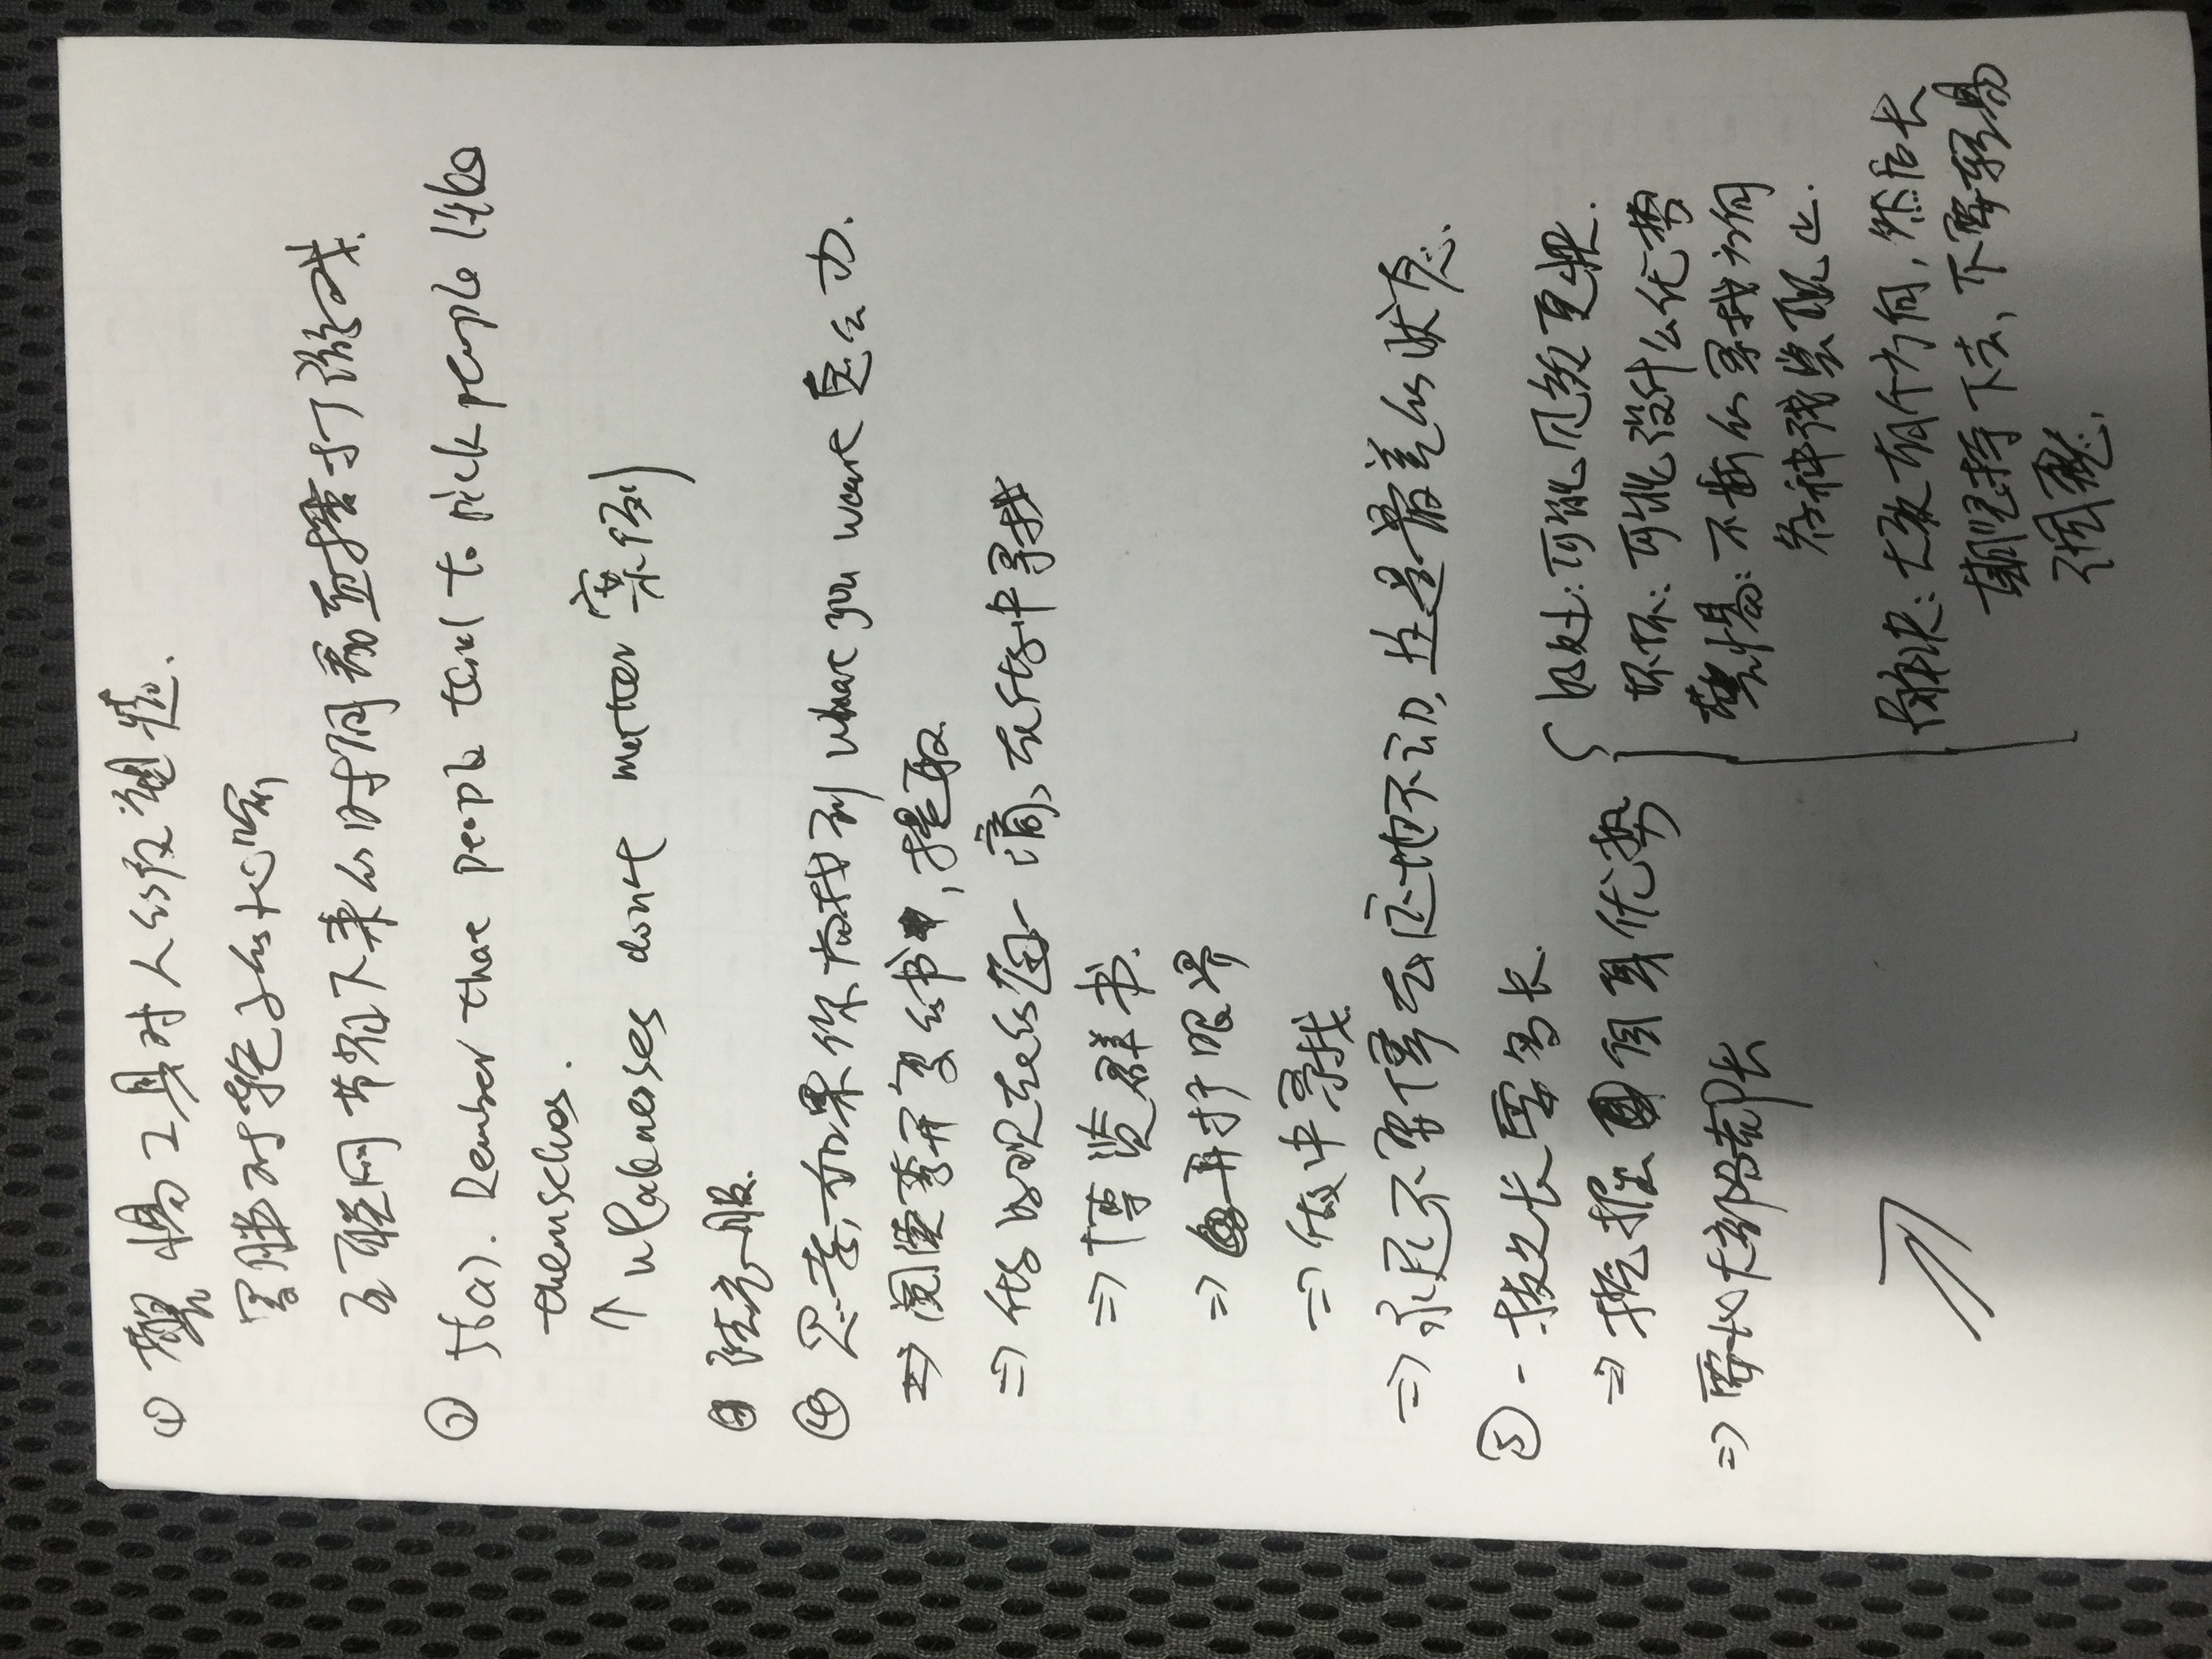 ① 警惕工具对人的反塑造.
罗胖对轮子的比喻
互联网节省下来的时间看直播打游戏.
② 56(a). Rember that people tend to pick people like
themselves.
↑ weaknesses don't matter 案例
③ 说服.
④ 思考,如果你尚找到 what you want 怎么办.
⇒ 阅读李开复的书,提取
⇒ 做好现在的每一滴、在做中寻找
⇒ 博览群书.
⇒ 再扩眼界
⇒ 做中寻找
⇒ 永远不要停在原地不动,这是最差的状态.
⑤ 一技之长要多长.
⇒ 挖掘自身优势
⇒ 要比大部分都长
好处:可能见效更快.
坏坏:可能没什么优势
警惕:不断的寻找方向
各种浅尝辄止.
解决:大致有个方向,然后长
期坚持下去,不要轻易
调整.